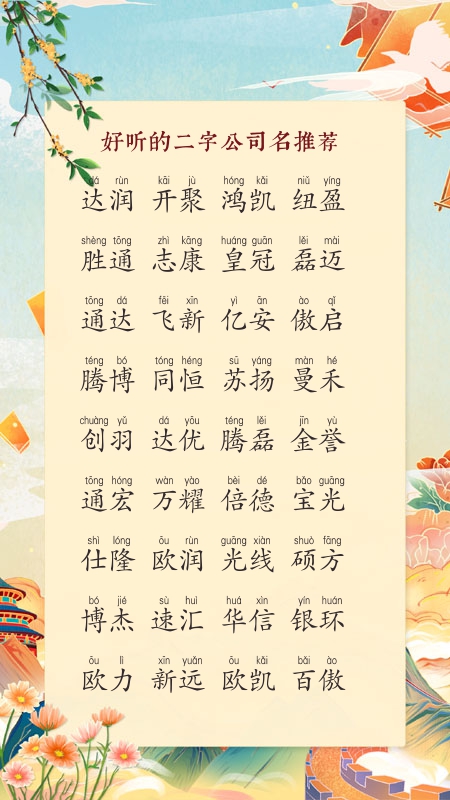 好听的二字公司名推荐
dá rùn kāi jù hóng kǎi niǔ yíng
达润 开聚 鸿凯 纽盈
shèng tōng zhì kāng huáng guān lěi mài
胜通 志康 皇冠 磊迈
tōng dá fēi xīn yì ān ào qǐ
通达 飞新 亿安 傲启
téng bó tóng héng sū yáng màn hé
腾博 同恒 苏扬 曼禾
chuàng yǔ dá yōu téng lěi jīn yù
创羽 达优 腾磊 金誉
tōng hóng wàn yào bèi dé bǎo guāng
通宏 万耀 倍德 宝光
shì lóng ōu rùn guāng xiàn shuò fāng
仕隆 欧润 光线 硕方
bó jié sù huì huá xìn yín huán
博杰 速汇 华信 银环
ōu lì xīn yuǎn ōu kǎi bǎi ào
欧力 新远 欧凯 百傲